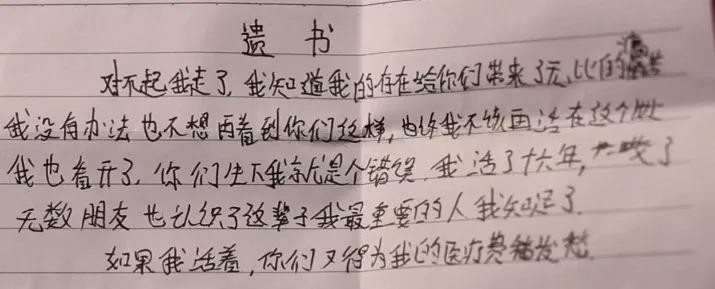 遗书
对不起我走了，我知道我的存在给你们带来了无比的痛苦
我没有办法也不想再看到你们这样，也许我不该再活在这个世
我也看开了，你们生下我就是个错误，我活了十六年，了
无数朋友也认识了这辈子我最重要的人我知足了
如果我活着，你们又得为我的医疗费发愁